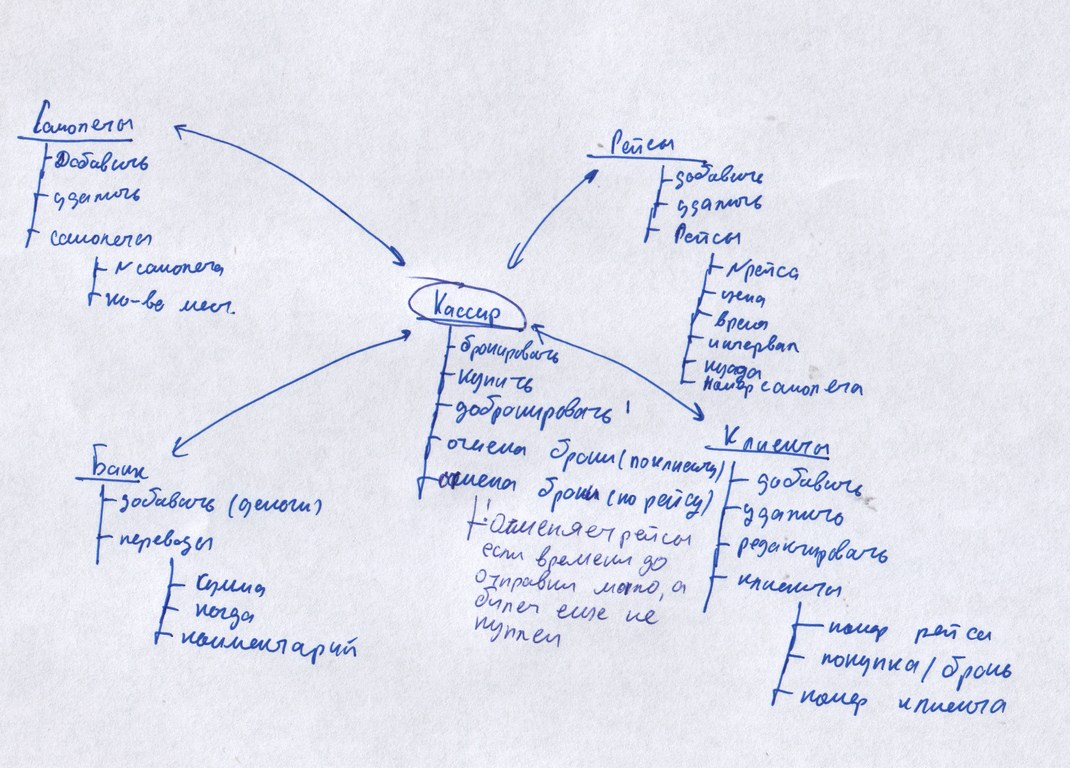 Самолеты
Добавить
удалить
самолеты
N самолета
ко-во мест.
Рейсы
добавить
удалить
Рейсы
N рейса
цена
время
интервал
куда
номер самолета
Кассир
бронировать
купить
добронировать
отмена брони (по клиенту)
отмена брони (по рейсу)
! Отменяет рейсы
если времени до
отправки мало, а
билет еще не
куплен
Банк
добавить (деньги)
переводы
сумма
когда
комментарий
Клиенты
добавить
удалить
редактировать
клиенты
номер рейса
покупка / бронь
номер клиента